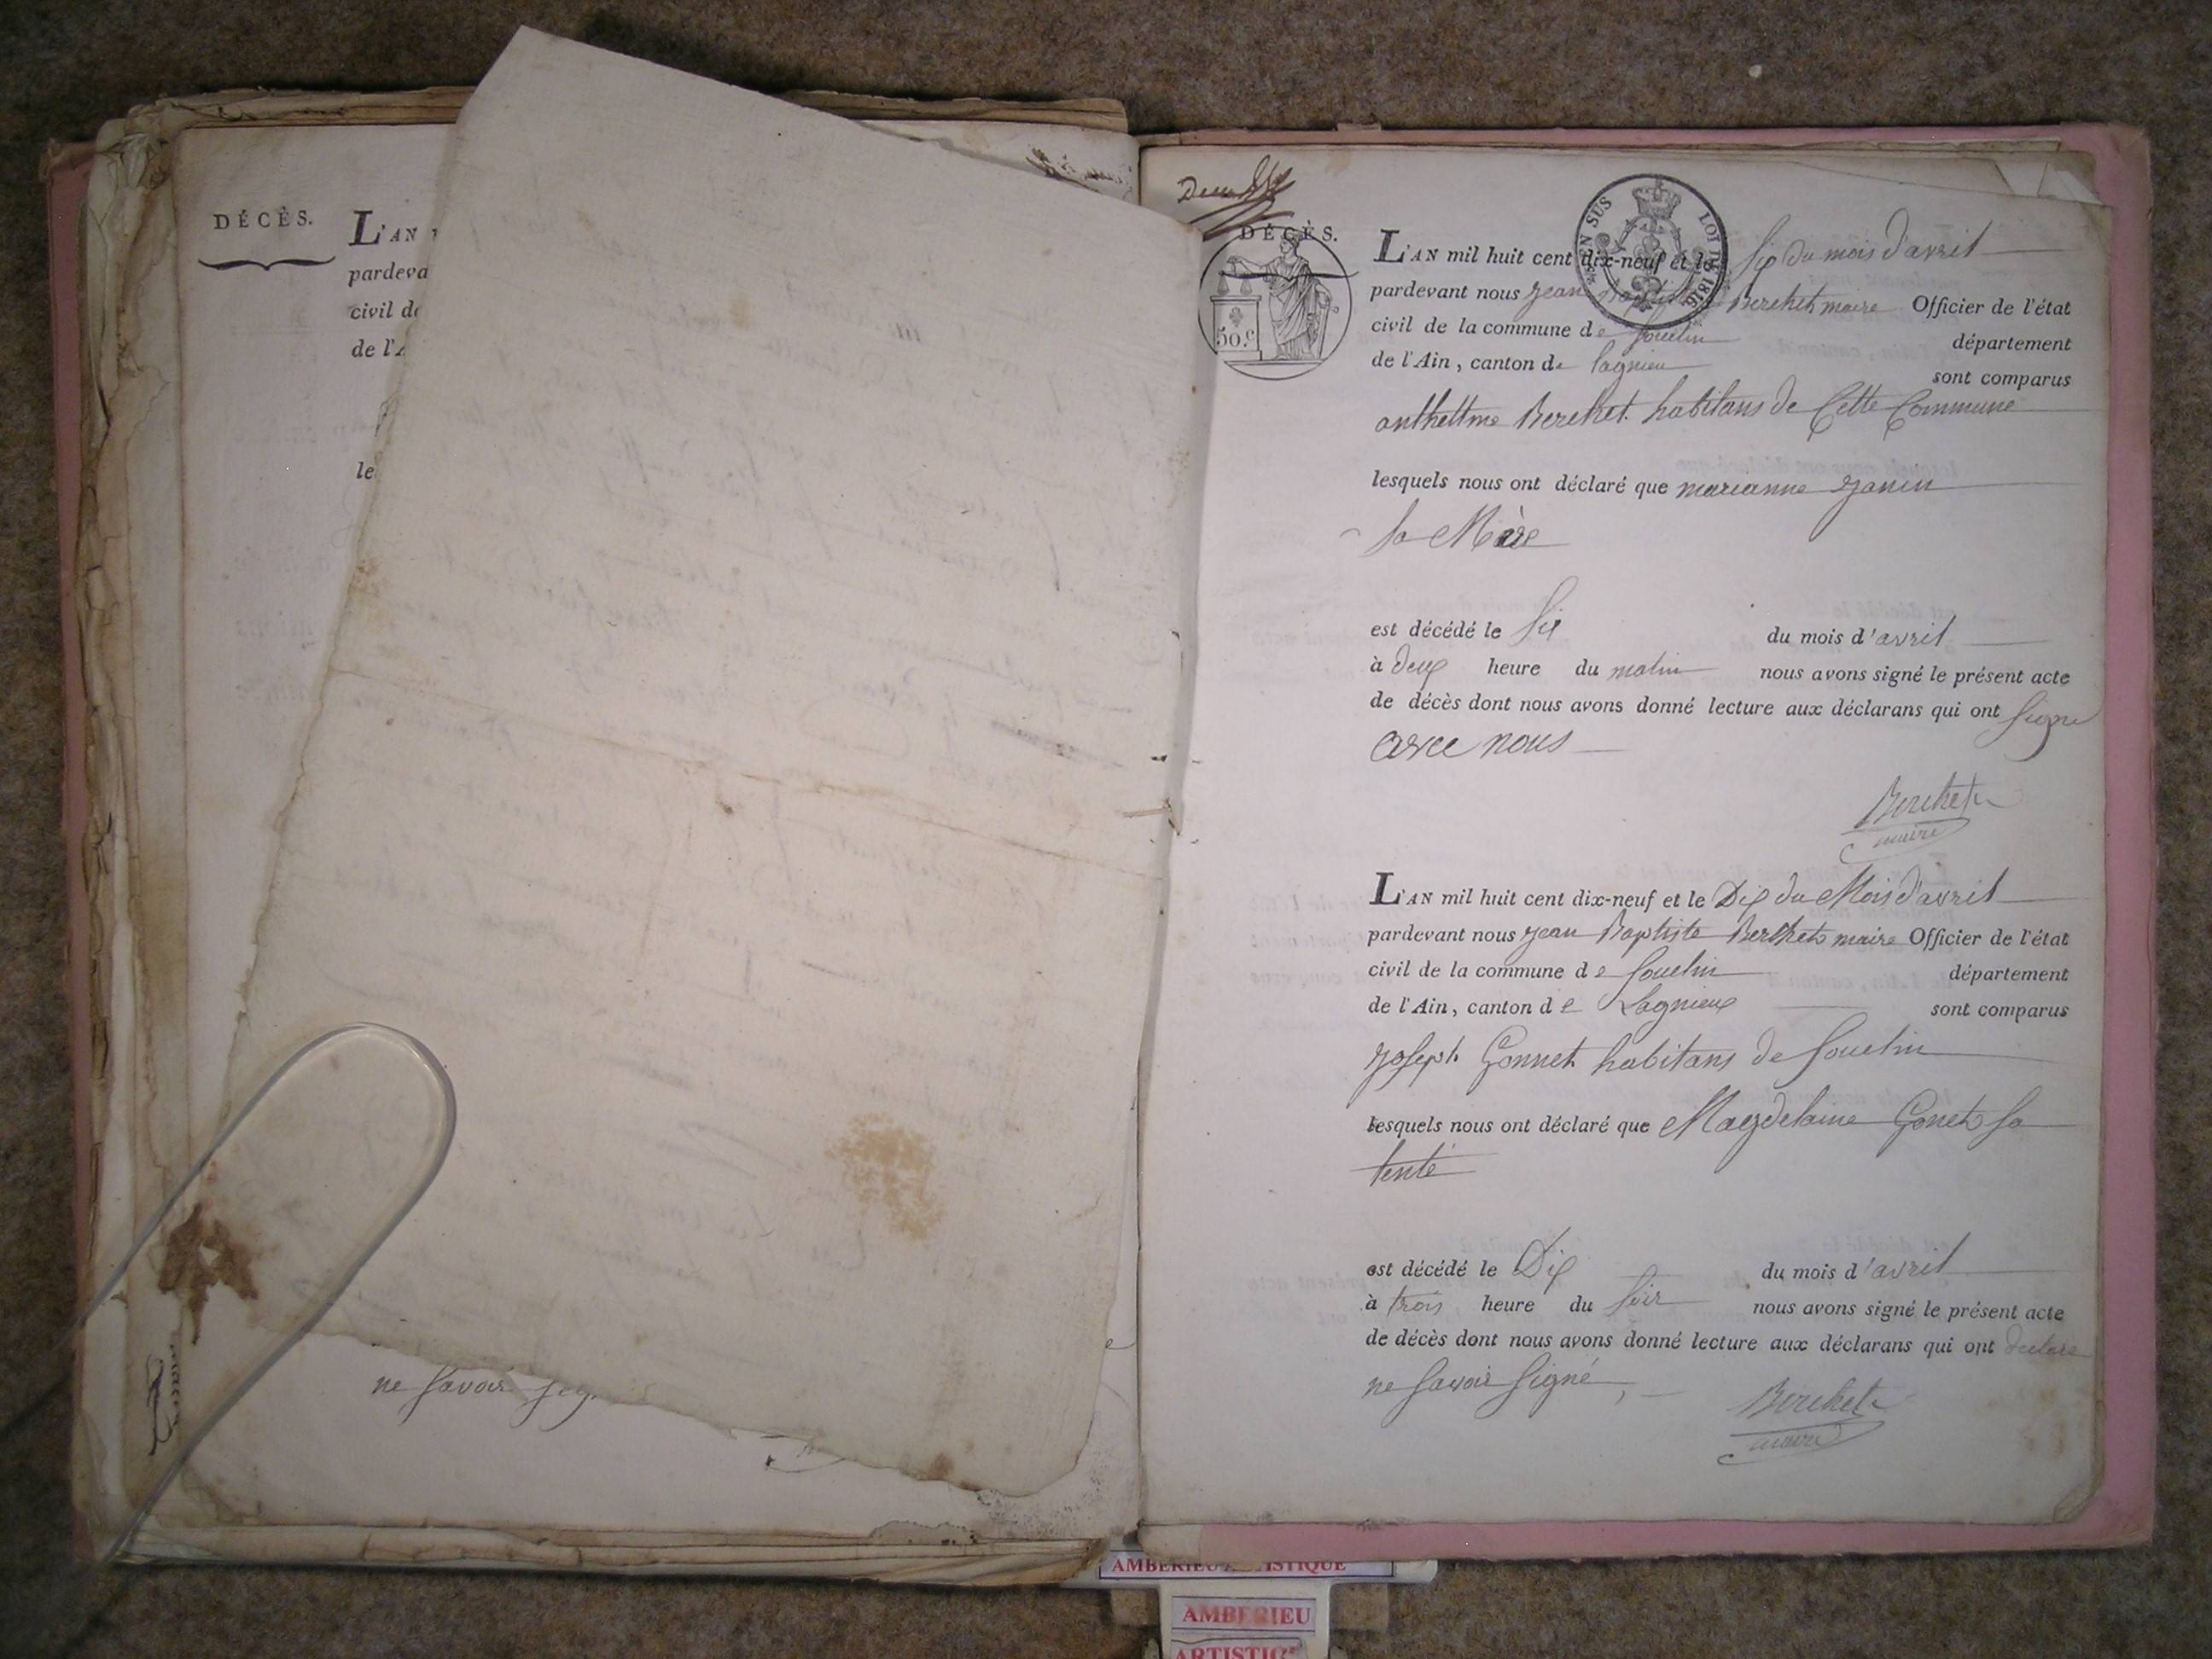 DÉCÈS.
L'AN
pardeva
civil de
de l'A
le
ne savoir
DÉCÈS.
EN SUS
LOI DE 1816
50.c
L'AN mil huit cent dix-neuf et le Six du mois d'avril
pardevant nous jean Baptiste Berthet maire Officier de l'état
civil de la commune de Souclin département
de l'Ain, canton de lagnieu sont comparus
anthelme Berthet habitans de Cette Commune
lesquels nous ont déclaré que marianne janin
Sa Mère
est décédé le Six du mois d'avril
à deux heure du matin nous avons signé le présent acte
de décès dont nous avons donné lecture aux déclarans qui ont Signe
avec nous
Berthet
maire
L'AN mil huit cent dix-neuf et le Dix du Mois d'avril
pardevant nous jean Baptiste Berthet maire Officier de l'état
civil de la commune de Souclin département
de l'Ain, canton de Lagnieux sont comparus
joseph Gonnet habitans de Souclin
lesquels nous ont déclaré que Magdelaine Gonet Sa
tente
est décédé le Dix du mois d'avril
à trois heure du Soir nous avons signé le présent acte
de décès dont nous avons donné lecture aux déclarans qui ont declare
ne Savoir Signé,
Berthet
maire
AMBERIEU ARTISTIQUE
AMBERIEU
ARTISTIQ